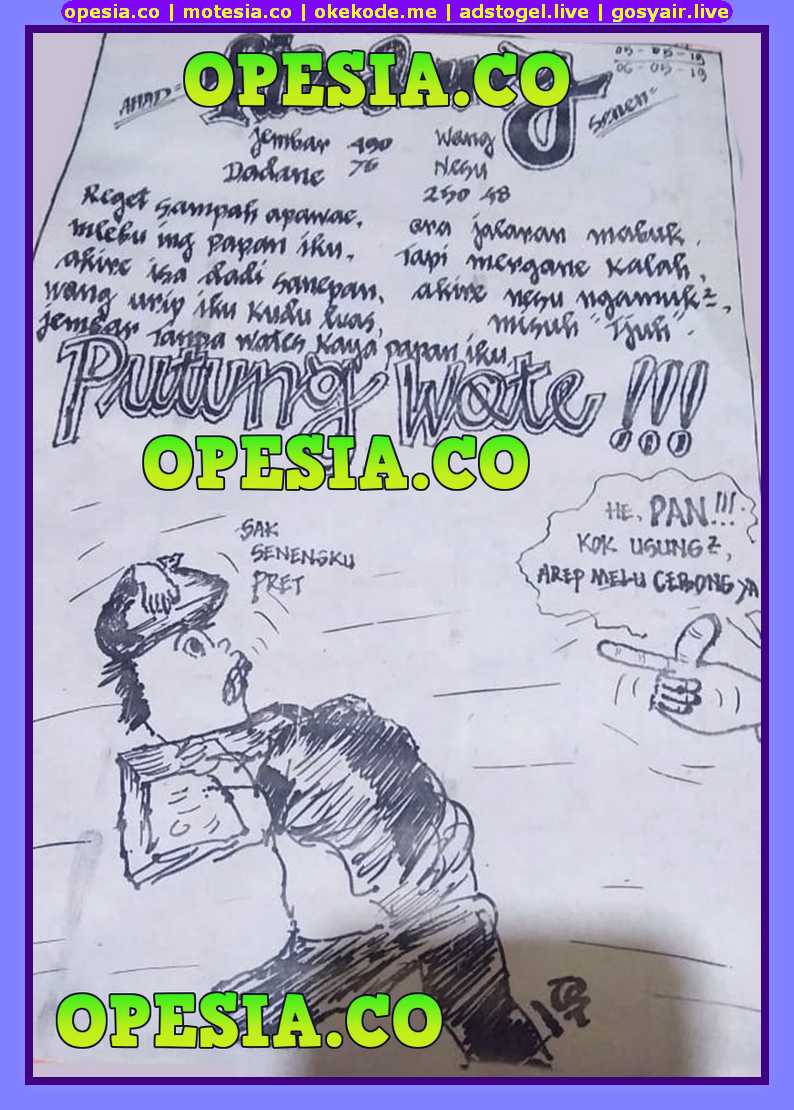 opesia.co | motesia.co | okekode.me | adstogel.live | gosyair.live
OPESIA.CO
05-05-19
06-05-19
AHAD
Senen
jembar 490
Dadane 76
wang
Nesu
250 48
Reget sampah apawae,
mlebu ing papan iku,
akire isa dadi sanepan,
wang urip iku kudu luas,
jembar tanpa wates kaya papan iku
ora jalaran mabuk,
Tapi mergane kalah,
akire nesu ngamuk2,
misuh "Tjuh".
Putung Wate !!!
OPESIA.CO
SAK
SENENGKU
PRET
HE, PAN!!!
KOK USUNG2,
AREP MELU CEBONG YA
OPESIA.CO